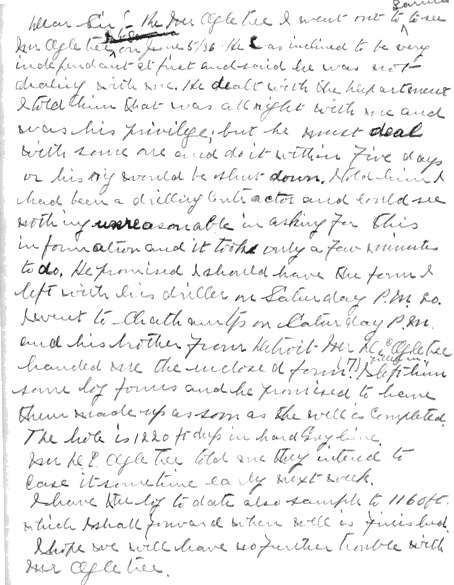 Dear Sir:- Re Mr Ogletree I went out to see
Mr Ogletree on June 5/36. He was inclined to be very
independant at first and said he was not
dealing with me. He dealt with the Department
I told him that was all right with me and
was his privilege, but he must deal
with some one and do it within Five days
or his rig would be shut down. I told him I
had been a drilling Contractor and could see
nothing unreasonable in asking for this
information and it took only a few minutes
to do. He promised I should have the form I
left with his driller on Saturday P.M. so
I went to Chatham Tp on Saturday P.M.
and his brother from Detroit Mr Ogletree
handed me the enclosed form. I left him
some log forms and he promised to have
them made up as soon as the well is Completed.
The hole is 1220 ft deep in hard Grey lime.
Mr Ogletree told me they intend to
Case it sometime early next week.
I have the log to date also sample to 1160 ft.
which I shall forward when well is finished.
I hope we will have no further trouble with
Mr Ogletree.